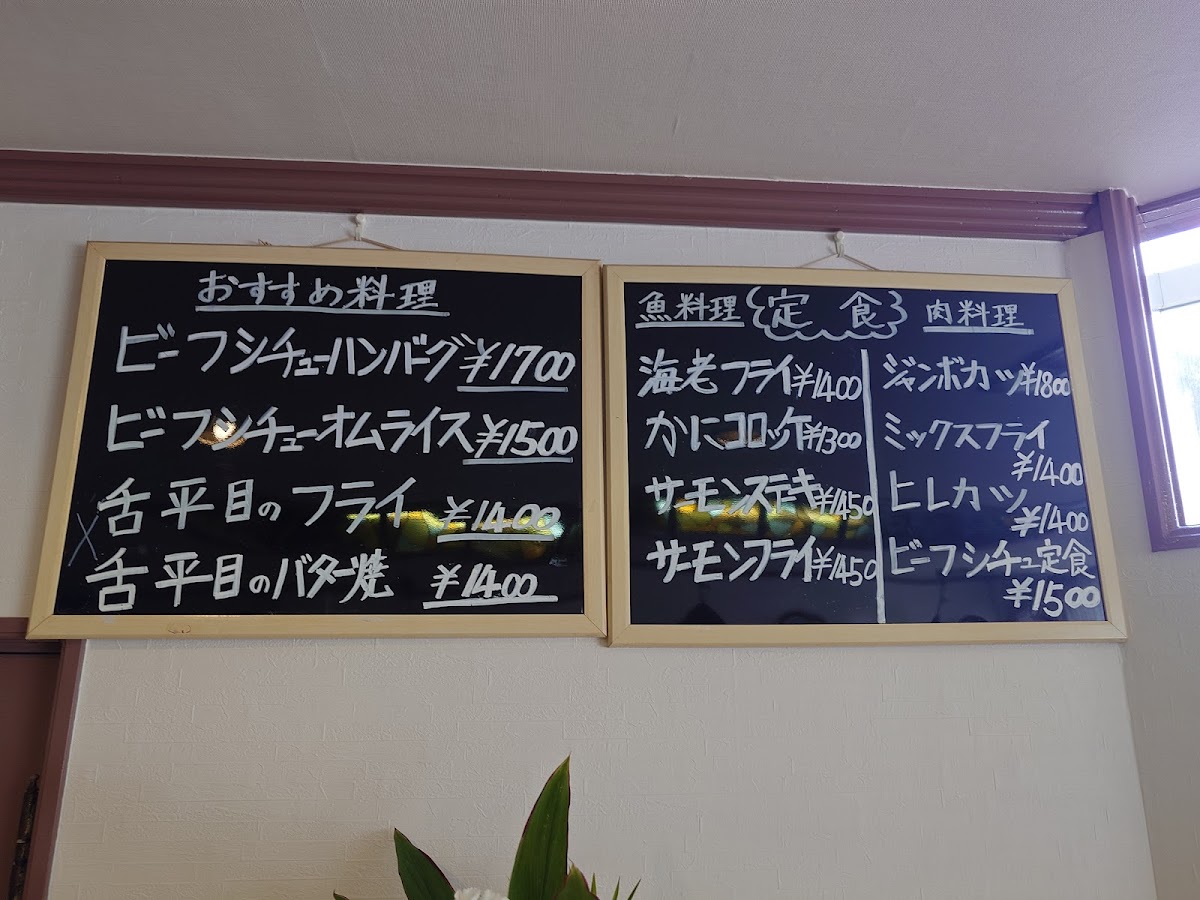 おすすめ料理
ビーフシチューハンバーグ ¥1700
ビーフシチューオムライス ¥1500
舌平目のフライ ¥1400
舌平目のバター焼 ¥1400
魚料理 定食 肉料理
海老フライ ¥1400
かにコロッケ ¥1300
サーモンステーキ ¥1450
サーモンフライ ¥1450
ジャンボカツ ¥1800
ミックスフライ
¥1400
ヒレカツ
¥1400
ビーフシチュ定食
¥1500